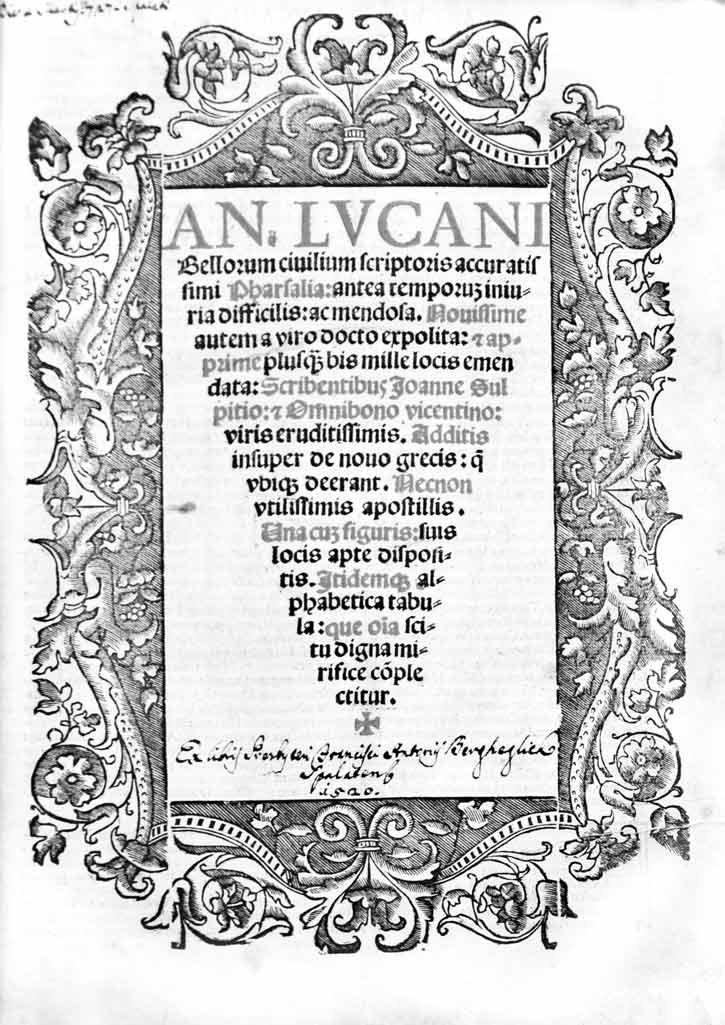 AN. LVCANI
Bellorum ciuilium scriptoris accuratis
simi Pharsalia: antea temporuꝫ iniu-
ria difficilis: ac mendosa. Nouissime
autem a viro docto expolita: ⁊ ap-
prime plusqꝫ bis mille locis emen
data: Scribentibus Joanne Sul
pitio: ⁊ Omnibono vicentino:
viris eruditissimis. Additis
insuper de nouo grecis: q̃
vbiqꝫ deerant. Necnon
vtilissimis apostillis.
Una cuꝫ figuris: suis
locis apte disposi-
tis. Itidemqꝫ al-
phabetica tabu-
la: que oĩa sci-
tu digna mi-
rifice cõple
ctitur.
Ex libris Presbyteri Francisci Antonij
Spalatens
1520.